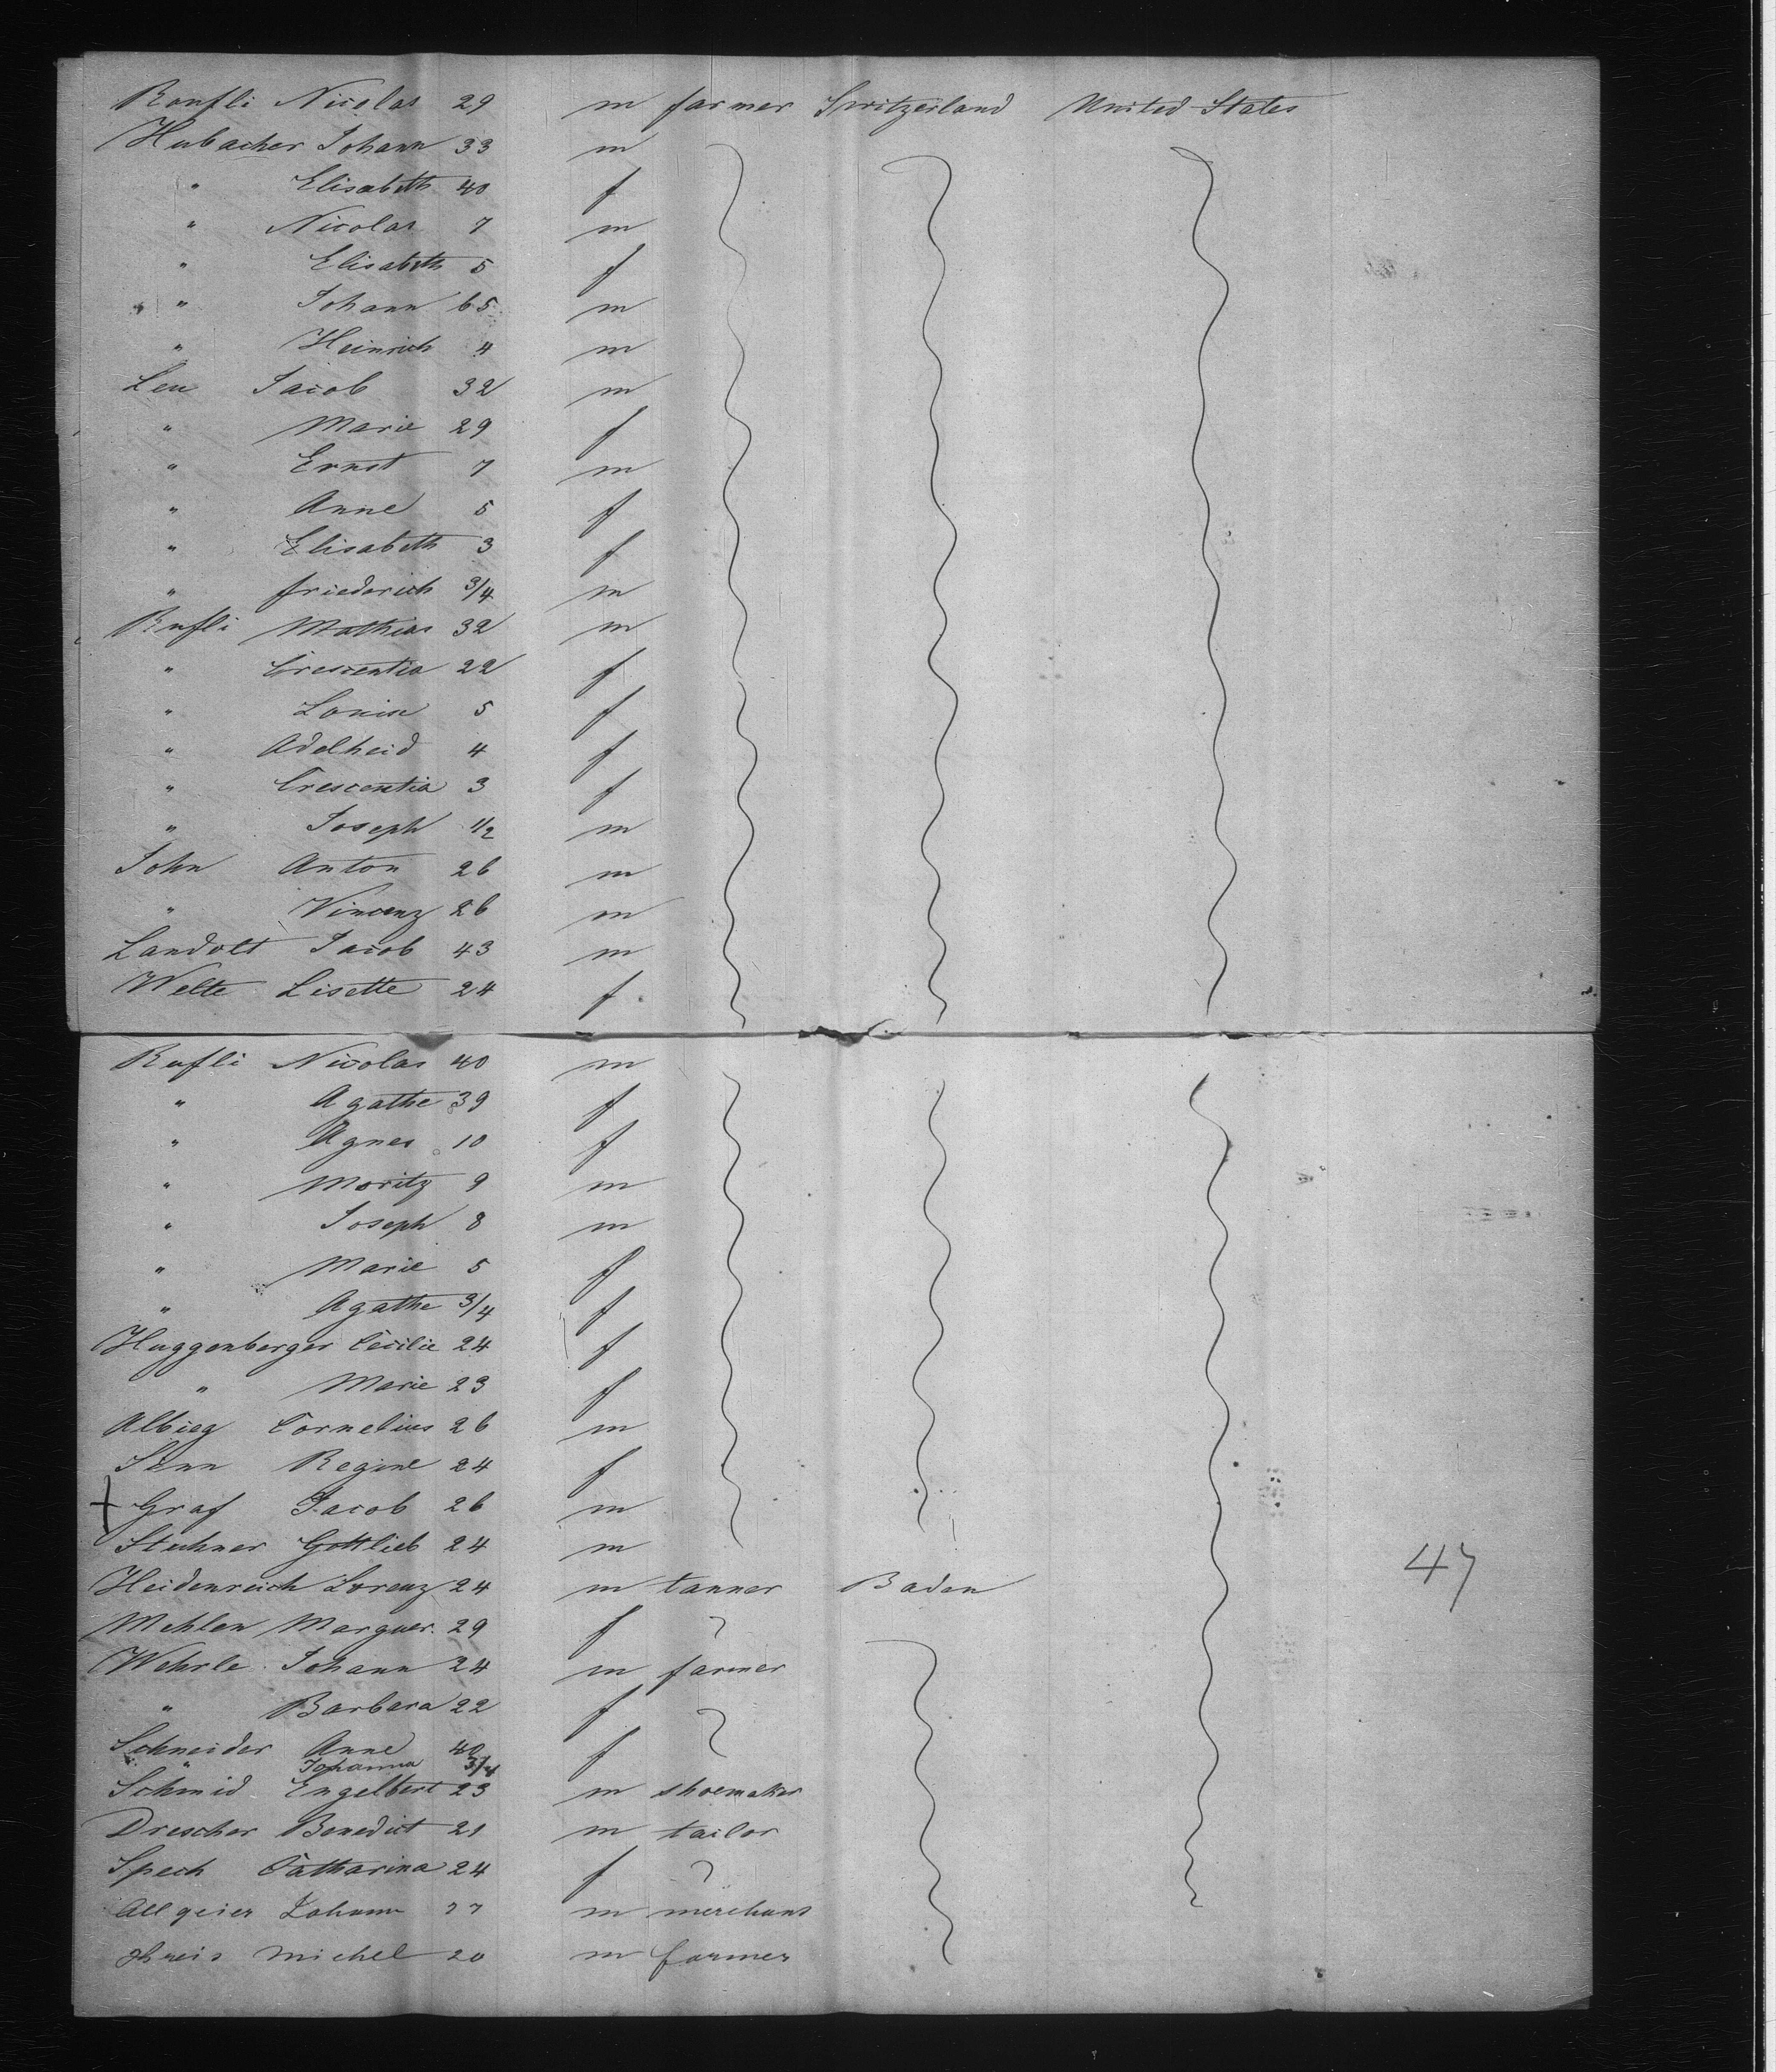 Ronfli Nicolas 29 m farmer Switzerland United States
Hubacher Johann 33 m
" Elisabeth 40 f
" Nicolas 7 m
" Elisabeth 5 f
" Johann 65 m
" Heinrich 4 m
Leu Jacob 32 m
" Marie 29 f
" Ernst 7 m
" Anne 5 f
" Elisabeth 3 f
" friederich 3/4 m
Rufli Mathias 32 m
" Crescentia 22 f
" Louise 5 f
" Adelheid 4 f
" Crescentia 3 f
" Joseph 1/2 m
John Anton 26 m
" Vincenz 26 m
Landolt Jacob 43 m
Welte Lisette 24 f
Rufli Nicolas 40 m
" Agathe 39 f
" Agnes 10 f
" Moritz 9 m
" Joseph 8 m
" Marie 5 f
" Agathe 3/4 f
Huggenberger Cecilie 24 f
" Marie 23 f
Albieg Cornelius 26 m
Senn Regine 24 f
+ Graf Jacob 26 m
Stuhner Gottlieb 24 m
47
Heidenreich Lorenz 24 m tanner Baden
Mehlen Marguer. 29 f
Wehrle Johann 24 m farmer
" Barbara 22 f
Schneider Anne 40 f
" Johanna 3/4
Schmid Engelbert 23 m shoemaker
Drescher Benedict 21 m tailor
Spech Catharina 24 f
Allgeier Johann 27 m merchant
Michel 20 m farmer